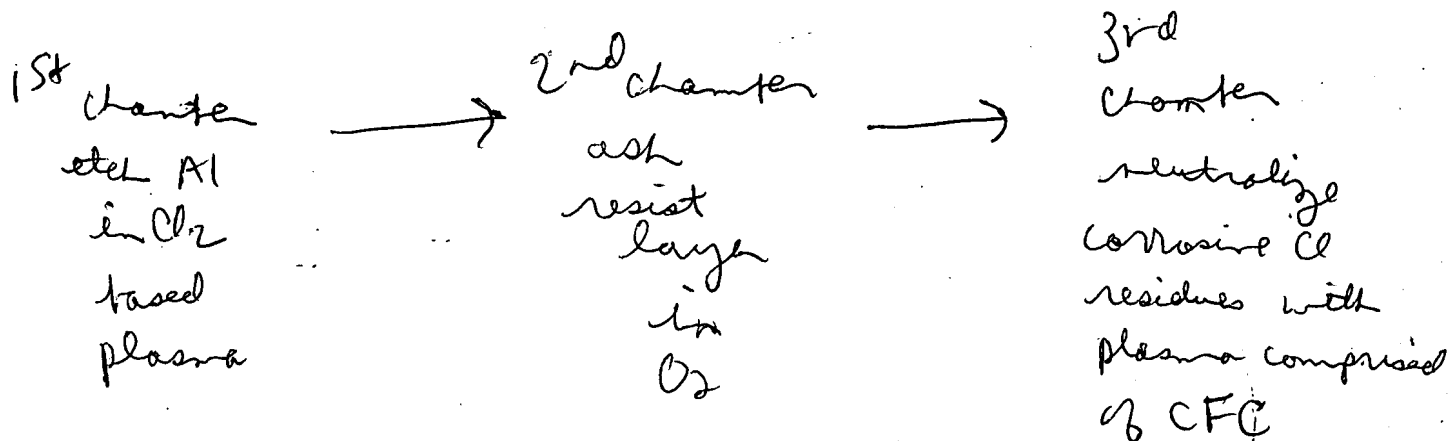 1st chamber
etch Al
in Cl2
based
plasma
2nd chamber
ash
resist
layer
in
O2
3rd
chamber
neutralize
corrosive Cl
residues with
plasma comprised
of CFC